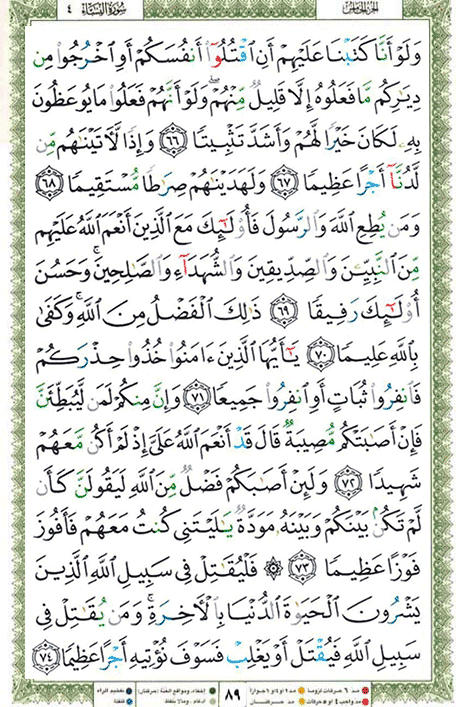 الجزء الخامس
سورة النساء ٤
وَلَوْ أَنَّا كَتَبْنَا عَلَيْهِمْ أَنِ ٱقْتُلُوٓا۟ أَنفُسَكُمْ أَوِ ٱخْرُجُوا۟ مِن
دِيَـٰرِكُم مَّا فَعَلُوهُ إِلَّا قَلِيلٌ مِّنْهُمْ ۖ وَلَوْ أَنَّهُمْ فَعَلُوا۟ مَا يُوعَظُونَ
بِهِۦ لَكَانَ خَيْرًا لَّهُمْ وَأَشَدَّ تَثْبِيتًا ٦٦ وَإِذًا لَّـَٔاتَيْنَـٰهُم مِّن
لَّدُنَّآ أَجْرًا عَظِيمًا ٦٧ وَلَهَدَيْنَـٰهُمْ صِرَٰطًا مُّسْتَقِيمًا ٦٨
وَمَن يُطِعِ ٱللَّهَ وَٱلرَّسُولَ فَأُو۟لَـٰٓئِكَ مَعَ ٱلَّذِينَ أَنْعَمَ ٱللَّهُ عَلَيْهِم
مِّنَ ٱلنَّبِيِّـۧنَ وَٱلصِّدِّيقِينَ وَٱلشُّهَدَآءِ وَٱلصَّـٰلِحِينَ ۚ وَحَسُنَ
أُو۟لَـٰٓئِكَ رَفِيقًا ٦٩ ذَٰلِكَ ٱلْفَضْلُ مِنَ ٱللَّهِ ۚ وَكَفَىٰ
بِٱللَّهِ عَلِيمًا ٧٠ يَـٰٓأَيُّهَا ٱلَّذِينَ ءَامَنُوا۟ خُذُوا۟ حِذْرَكُمْ
فَٱنفِرُوا۟ ثُبَاتٍ أَوِ ٱنفِرُوا۟ جَمِيعًا ٧١ وَإِنَّ مِنكُمْ لَمَن لَّيُبَطِّئَنَّ
فَإِنْ أَصَـٰبَتْكُم مُّصِيبَةٌ قَالَ قَدْ أَنْعَمَ ٱللَّهُ عَلَىَّ إِذْ لَمْ أَكُن مَّعَهُمْ
شَهِيدًا ٧٢ وَلَئِنْ أَصَـٰبَكُمْ فَضْلٌ مِّنَ ٱللَّهِ لَيَقُولَنَّ كَأَن
لَّمْ تَكُنۢ بَيْنَكُمْ وَبَيْنَهُۥ مَوَدَّةٌ يَـٰلَيْتَنِى كُنتُ مَعَهُمْ فَأَفُوزَ
فَوْزًا عَظِيمًا ٧٣ ۞ فَلْيُقَـٰتِلْ فِى سَبِيلِ ٱللَّهِ ٱلَّذِينَ
يَشْرُونَ ٱلْحَيَوٰةَ ٱلدُّنْيَا بِٱلْـَٔاخِرَةِ ۚ وَمَن يُقَـٰتِلْ فِى
سَبِيلِ ٱللَّهِ فَيُقْتَلْ أَوْ يَغْلِبْ فَسَوْفَ نُؤْتِيهِ أَجْرًا عَظِيمًا ٧٤
٨٩